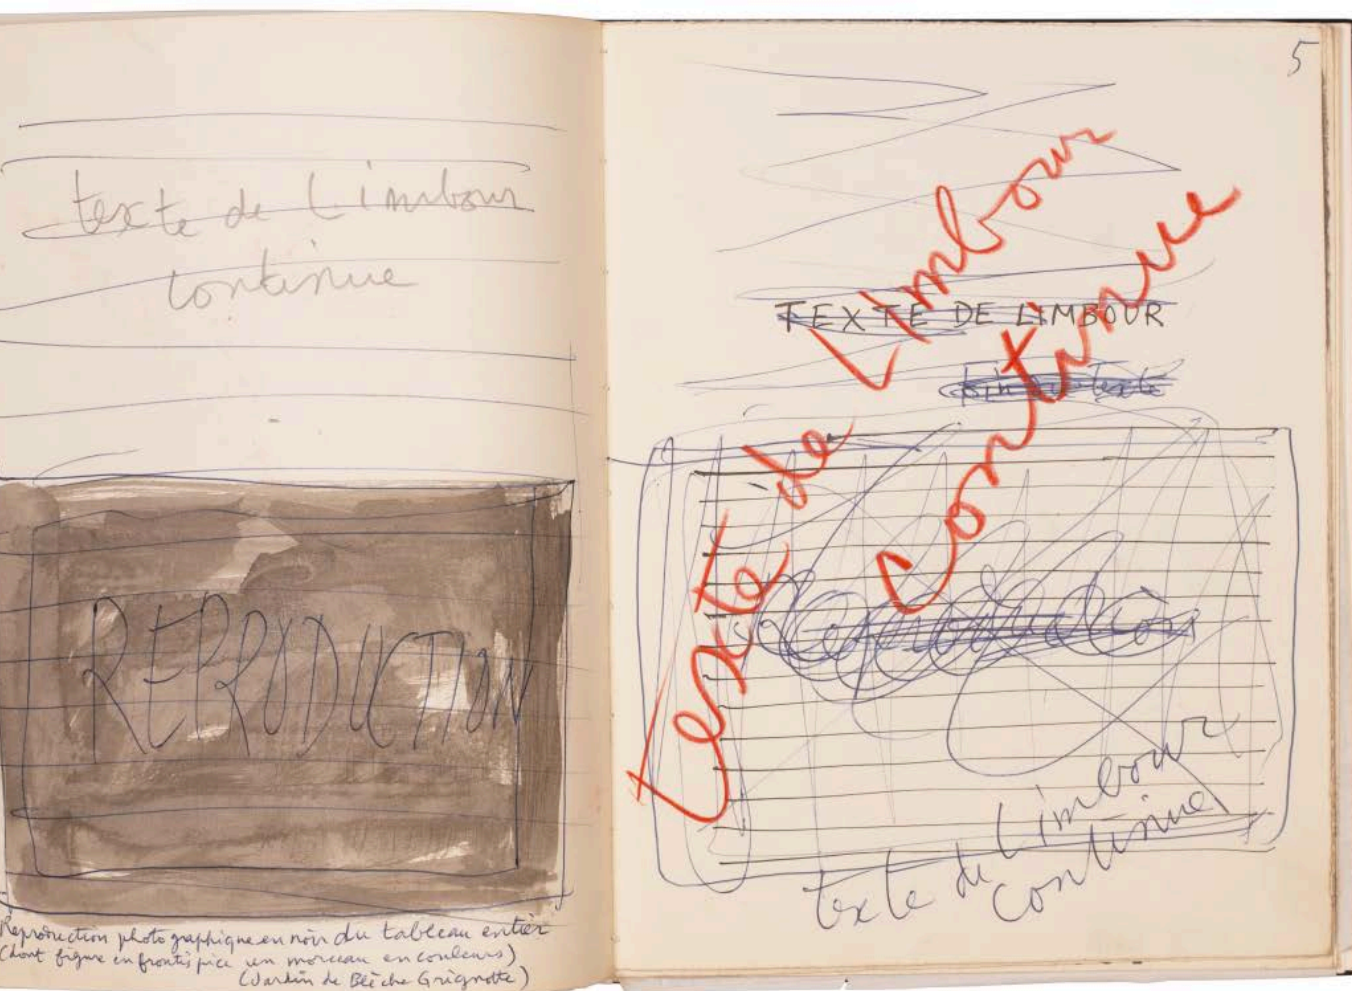 texte de Limbour
continue
REPRODUCTION
Reproduction photographique en noir du tableau entier
(dont figure en frontispice un morceau en couleurs)
(Jardin de Bêche Grignotte)
5
TEXTE DE LIMBOUR
fin du texte
texte de Limbour
continue
Reproduction
texte de Limbour
continue